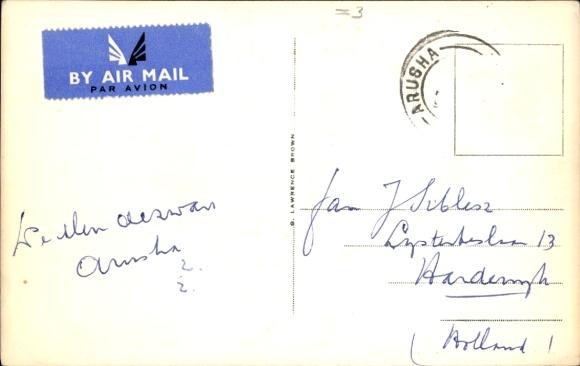 =3
BY AIR MAIL
PAR AVION
ARUSHA
D. LAWRENCE BROWN
Arusha
2.
2.
Jan J Sibles
Lysterbeslaan 13
Harderwijk
Holland !